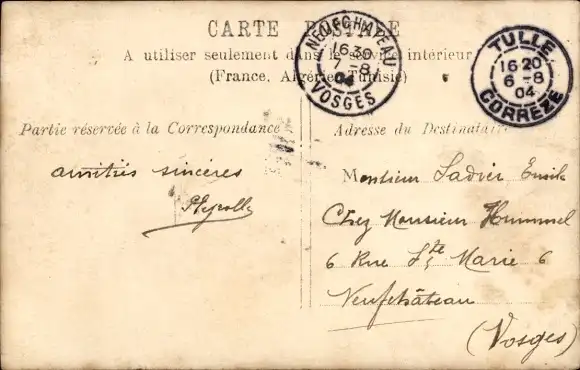 CARTE POSTALE
A utiliser seulement dans le service intérieur
(France, Algérie, Tunisie)
NEUFCHATEAU
16 30
7 -8
04
VOSGES
TULLE
16 20
6 -8
04
CORREZE
Partie réservée à la Correspondance
Adresse du Destinataire
amitiés sincères
Monsieur Ladvie Emile
Chez Monsieur Hummel
6 Rue Ste Marie 6
Neufchâteau
(Vosges)